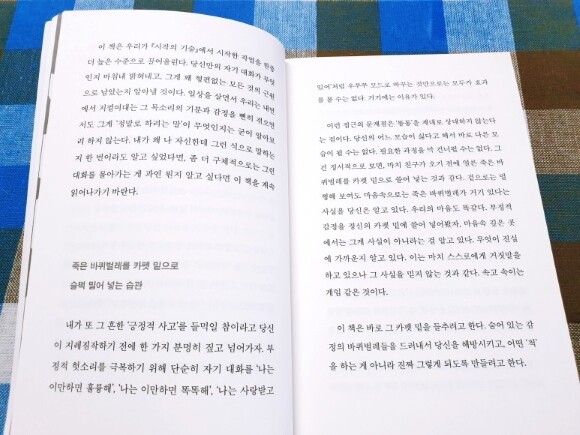 이 책은 우리가 『시작의 기술』에서 시작한 작업을 한층
더 높은 수준으로 끌어올린다. 당신만의 자기 대화가 무엇
인지 마침내 밝혀내고, 그게 왜 형편없는 모든 것의 근원
으로 남았는지 알아낼 것이다. 일상을 살면서 우리는 내면
에서 지껄여대는 그 목소리의 기분과 감정을 뻔히 겪으면
서도 그게 '정말로 하려는 말'이 무엇인지는 굳이 알아보
려 하지 않는다. 내가 왜 나 자신한테 그런 식으로 말하는
지 한 번이라도 알고 싶었다면, 좀 더 구체적으로는 그런
대화를 몰아가는 게 과연 뭔지 알고 싶다면 이 책을 계속
읽어나가기 바란다.
죽은 바퀴벌레를 카펫 밑으로
슬쩍 밀어 넣는 습관
내가 또 그 흔한 '긍정적 사고'를 들먹일 참이라고 당신
이 지레짐작하기 전에 한 가지 분명히 짚고 넘어가자. 부
정적 헛소리를 극복하기 위해 단순히 자기 대화를 '나는
이만하면 훌륭해', '나는 이만하면 똑똑해', '나는 사랑받고
있어'처럼 우쭈쭈 모드로 바꾸는 것만으로는 모두가 효과
를 볼 수는 없다. 거기에는 이유가 있다.
이런 접근의 문제점은 '똥통'을 제대로 상대하지 않는다
는 점이다. 당신의 어느 모습이 싫다고 해서 바로 다른 모
습이 될 수는 없다. 필요한 과정을 싹 건너뛸 수는 없다. 그
건 정서적으로 보면, 마치 친구가 오기 전에 얼른 죽은 바
퀴벌레를 카펫 밑으로 쓸어 넣는 것과 같다. 겉으로는 멀
쩡해 보여도 마음속으로는 죽은 바퀴벌레가 거기 있다는
사실을 당신은 알고 있다. 우리의 마음도 똑같다. 부정적
감정을 정신의 카펫 밑으로 쓸어 넣어봤자, 마음속 깊은 곳
에서는 그게 사실이 아니라는 걸 알고 있다. 무엇이 진실
에 가까운지 알고 있다. 이는 마치 스스로에게 거짓말을
하고 있으나 그 사실을 믿지 않는 것과 같다. 속고 속이는
게임 같은 것이다.
이 책은 바로 그 카펫 밑을 들추려고 한다. 숨어 있는 감
정의 바퀴벌레들을 드러내서 당신을 해방시키고, 어떤 '척'
을 하는 게 아니라 진짜 그렇게 되도록 만들려고 한다.